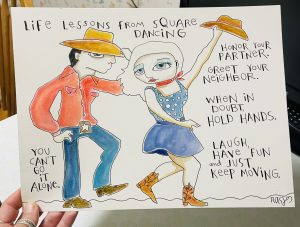 LIFE LESSONS FROM SQUARE
DANCING
HONOR YOUR
PARTNER.
GREET YOUR
NEIGHBOR.
WHEN IN
DOUBT
HOLD HANDS.
LAUGH,
HAVE FUN
and JUST
KEEP MOVING.
YOU
CAN'T
GO IT
ALONE.